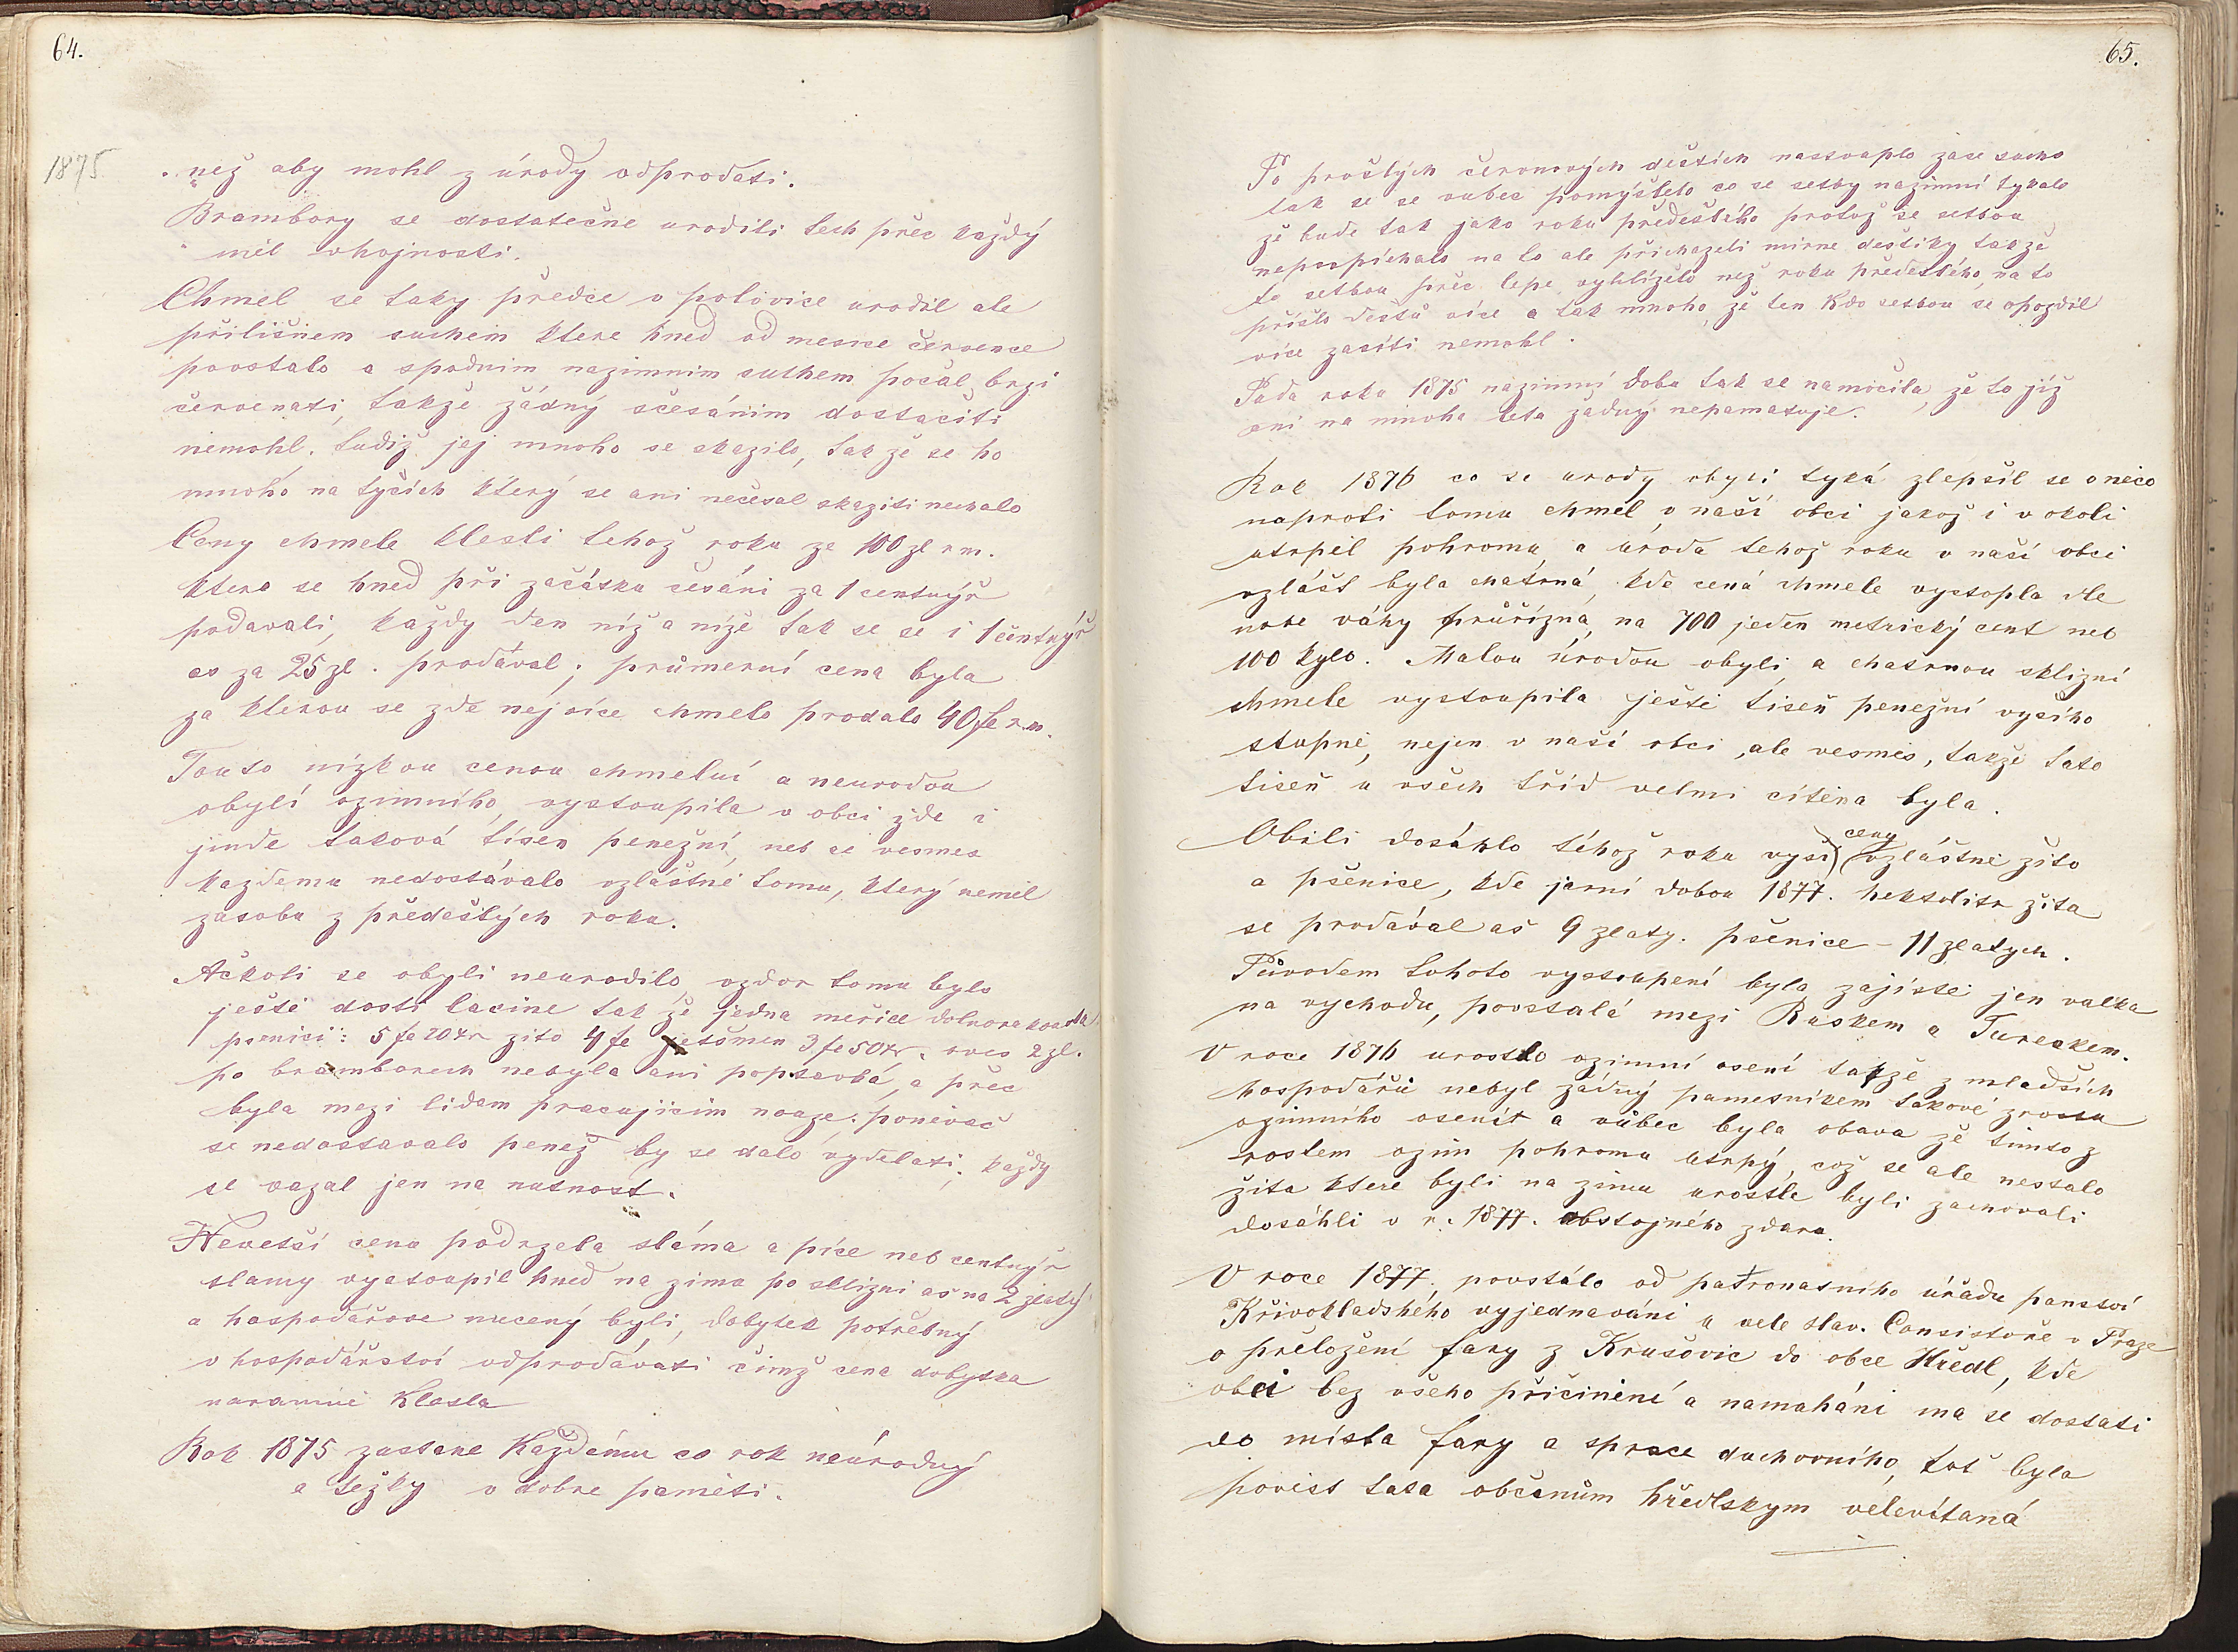 64.
1875
než aby mohl z úrody odprodati.
Brambory se dostatečne urodili tech přec každý
měl vhojnosti.
Chmel se taky předce v polovice urodil ale
přilišnem suchem ktere hned od mesice července
povstalo a spodnim nazimnim suchem počal brzi
červenati, takže žádný sčesánim dostačiti
nemohl, tudiž jej mnoho se skazilo, tak že se ho
mnoho na tyčich který se ani nečesal skaziti nechalo
Ceny chmele klesli tehož roku ze 100 zl r m.
ktera se hned při začátku česáni za 1 centnýř
podavali, každy den níž a níže tak se se i 1 centnýř
co za 25 zl. prodával; průmerní cena byla
za kterou se zde nejvíce chmelo prodalo 40 fe r.m.
Touto nízkou cenou chmelní a neurodou
obylí ozimního, vystoupila v obci zde i
jinde taková tísen penežní, neb se vesmes
každemu nedostávalo vzláštné tomu, který nemél
zasobu z předešlých roku.
Ačkoli se obyli neurodilo, vzdor tomu bylo
ještě dosti lacine tak že jedna meřice dolnorakouska
psenici: 5 fe 20 xr zito 4 fe ječmen 3 fe 50 xr. oves 2 zl.
po bramborech nebyla ani poptavbá, a přec
byla mezi lidem pracujicim nouze; ponivač
se nedostavalo penež by se dalo vydelati; každy
se vazal jen na nutnost.
Nevetší cenu podrzela sláma a píce neb centnýř
slamy vystoupil hned na zima po sklizni as na 2 zlatý
a hospodářove nucený byli, dobytek potřebný
v hospodářství odprodávati čimž cena dobytka
naramně klesla
Rok 1875 zustane Každému co rok neúrodný
a težky v dobre paměti.
65.
Po prošlých červnových deštích nastouplo zase sucho
tak se se vubec pomýšlelo co se setby nazimní tykalo
že bude tak jako roku předešlého protož se setbou
nepospíchalo na to ale přichazeli mirne deštíky takže
to setbou přec lepe vyhlíželo než roku předešlého, na to
přišlo deštů více a tak mnoho, že ten kdo setbou se opozdil
více zasíti nemohl.
Tada roku 1875 nazimní doba tak se namočila, že to již
ani na mnoha leta žadný nepamatuje.
Rok 1876 co se urody obyli tyká zlepšil se o něco
naproti tomu chmel v naší obci jakož i v okoli
utrpěl pohromu, a úroda tehož roku v naší obci
vzlášt byla chatrná kde cená chmele vystopla dle
nove váhy průřízná, na 700 jeden metrický cent neb
100 kylo. Malou úrodou obyli, a chatrnou sklizní
chmele vystoupila ještě tiseň penežní vysího
stupně, nejen v naší obci, ale vesmés, takže tato
tiseň u všech tříd velmi cítěna byla.
Obili dosáhlo téhož roku vysi ceny vzláštně žito
a pšenice, kde jarní dobou 1877. hektolitr žita
se prodával as 9 zlaty. pšenice – 11 zlatych.
Původem tohoto vystoupení byla zajisté jen valka
na vychodu, povstalá mezi Ruskem a Tureckem.
V roce 1876 urostlo ozimní osení takže z mladších
hospodářů nebyl žádný pamesníkem takové zrostu
ozimního osení a vůbec byla obava že tímto z
rostem ozim pohromu utrpý, což se ale nestalo
žita ktere byli na zimu urostle byli zachovali
dosáhli v r. 1877. obstojného zdaru.
V roce 1877. povstálo od patronatního úřadu panství
Křivokladského vyjednaváni u vele slav. Consistoře v Praze
o přeložení fary z Krušovic do obce Hředl, kde
obci bez všeho přičinéní a namaháni ma se dostati
do místa fary a sprace duchovního, tot byla
povést tata občanům hředlskym velevítaná